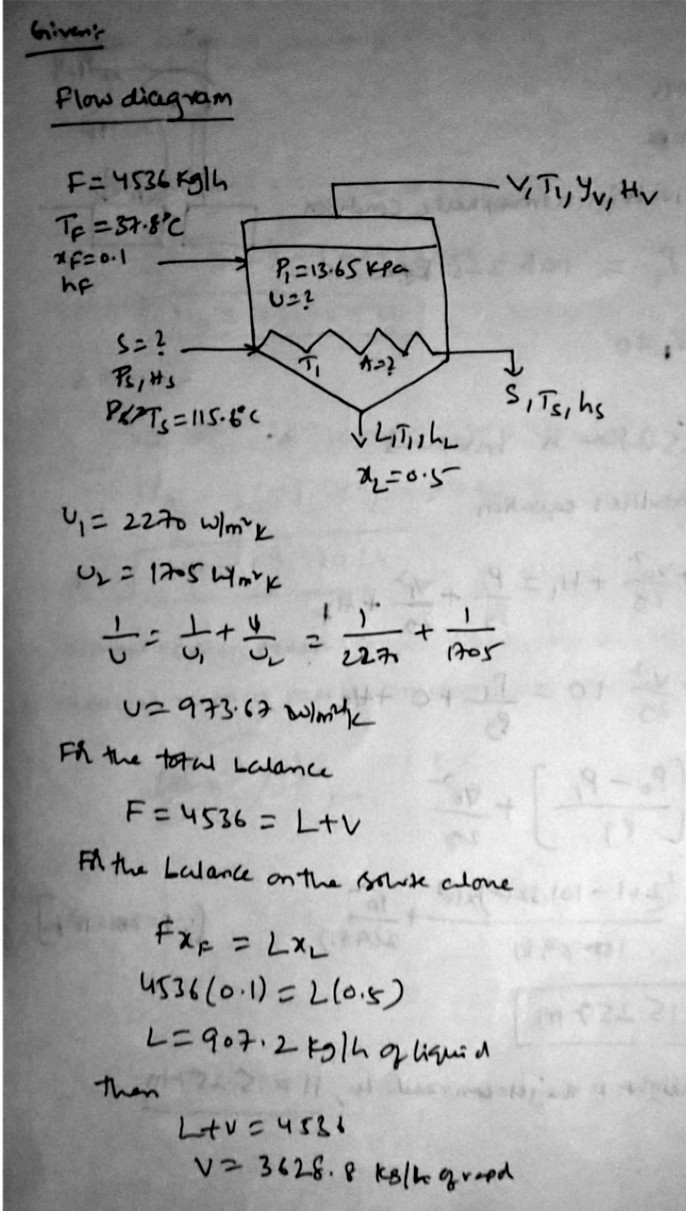 Given:
Flow diagram
F = 4536 Kg/h
T_F = 37.8°C
x_F = 0.1
h_F
V, T₁, y_V, H_V
P₁ = 13.65 KPa
U = ?
S = ?
P_S, H_S
T_S = 115.6°C
T₁ A = ?
S, T_S, h_S
L, T₁, h_L
x_L = 0.5
U₁ = 2270 W/m²K
U₂ = 1705 W/m²K
1/U = 1/U₁ + 1/U₂ = 1/2270 + 1/1705
U = 973.67 W/m²K
For the total balance
F = 4536 = L+V
For the balance on the solute alone
Fx_F = Lx_L
4536(0.1) = L(0.5)
L = 907.2 kg/h of liquid
then
L+V = 4536
V = 3628.8 kg/h of